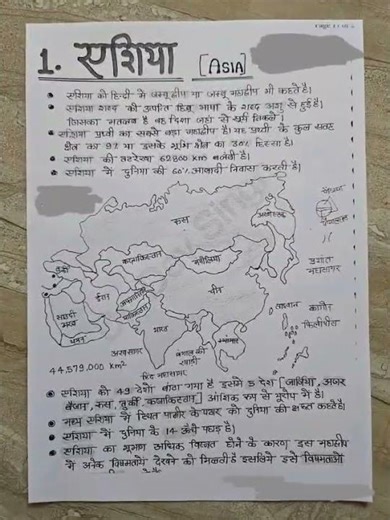 1. एशिया [ASIA]
• एशिया को हिन्दी में जम्बू द्वीप या जम्बू महाद्वीप भी कहते है।
• एशिया शब्द की उत्पत्ति हिब्रू भाषा के शब्द आशु से हुई है।
जिसका मतलब है वह दिशा जहां से सूर्य निकले।
• एशिया पृथ्वी का सबसे बड़ा महाद्वीप है। यह पृथ्वी के कुल सतह
क्षेत्र का 9% या इसके भूमि क्षेत्र का 30% हिस्सा है।
• एशिया की तटरेखा 62800 km लम्बी है।
• एशिया में दुनिया की 60% आबादी निवास करती है।
रूस
कजाकिस्तान
मंगोलिया
तुर्की
ईरान
अफगानिस्तान
पाकिस्तान
चीन
सऊदी
अरब
यमन
भारत
जापान
प्रशांत
महासागर
फिलीपींस
अरब सागर
बंगाल की
खाड़ी
हिंद महासागर
44,579,000 km²
• एशिया को 49 देशों बांटा गया है इसमें 5 देश [जार्जिया, अजर
बैजान, रूस, तुर्की, कजाकिस्तान] आंशिक रूप से यूरोप में है।
• मध्य एशिया में स्थित पामीर के पठार को दुनिया की छत कहते है।
• एशिया में दुनिया के 14 ऊँची पहाड़ है।
• एशिया का भूभाग अधिक विस्तृत होने के कारण इस महाद्वीप
में अनेक विषमताये देखने को मिलती है इसलिये इसे विषमताओ